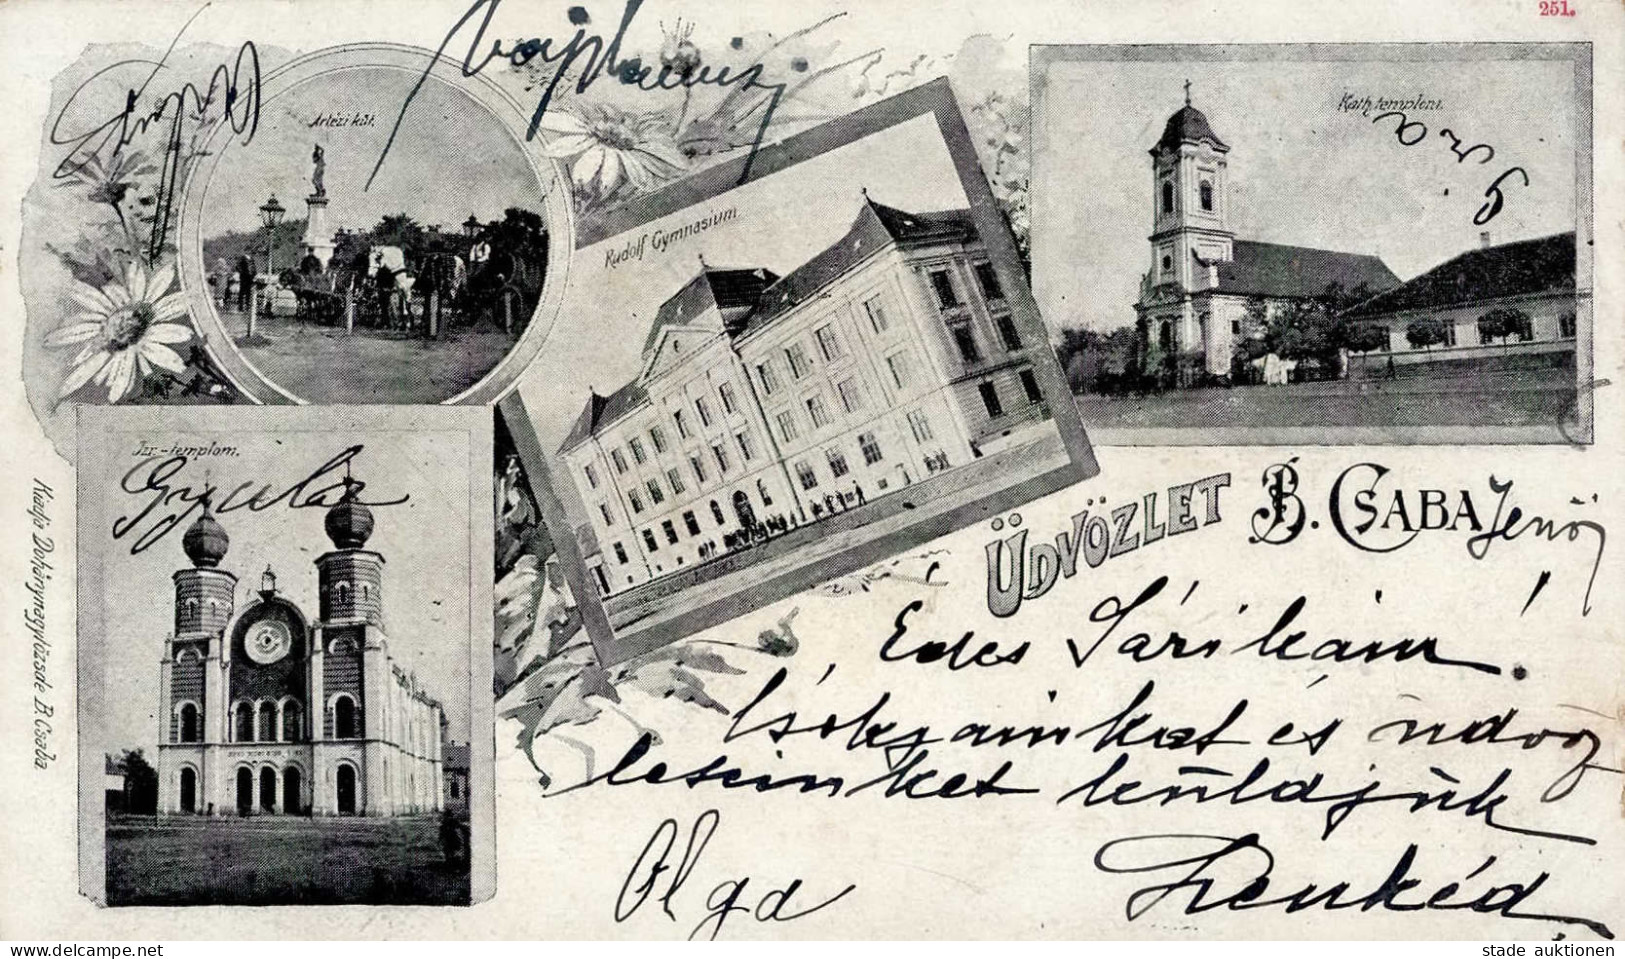 251.
Artézi kút.
Rudolf Gymnasium.
Kath. templom.
Izr.-templom.
Gyula
ÜDVÖZLET B. CSABA
Jenő
Édes Sárikám!
Csókjainkat és üdvöz
leteinket küldjük
Irenkéd
Olga
Kiadja Dohánynagytőzsde B. Csaba
www.delcampe.net
stade auktionen